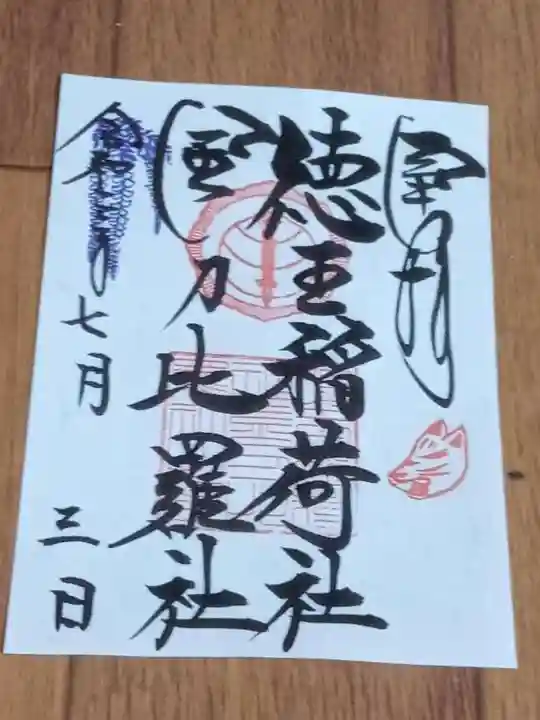 奉拝
徳王稲荷社
刀比羅社
七月
三日